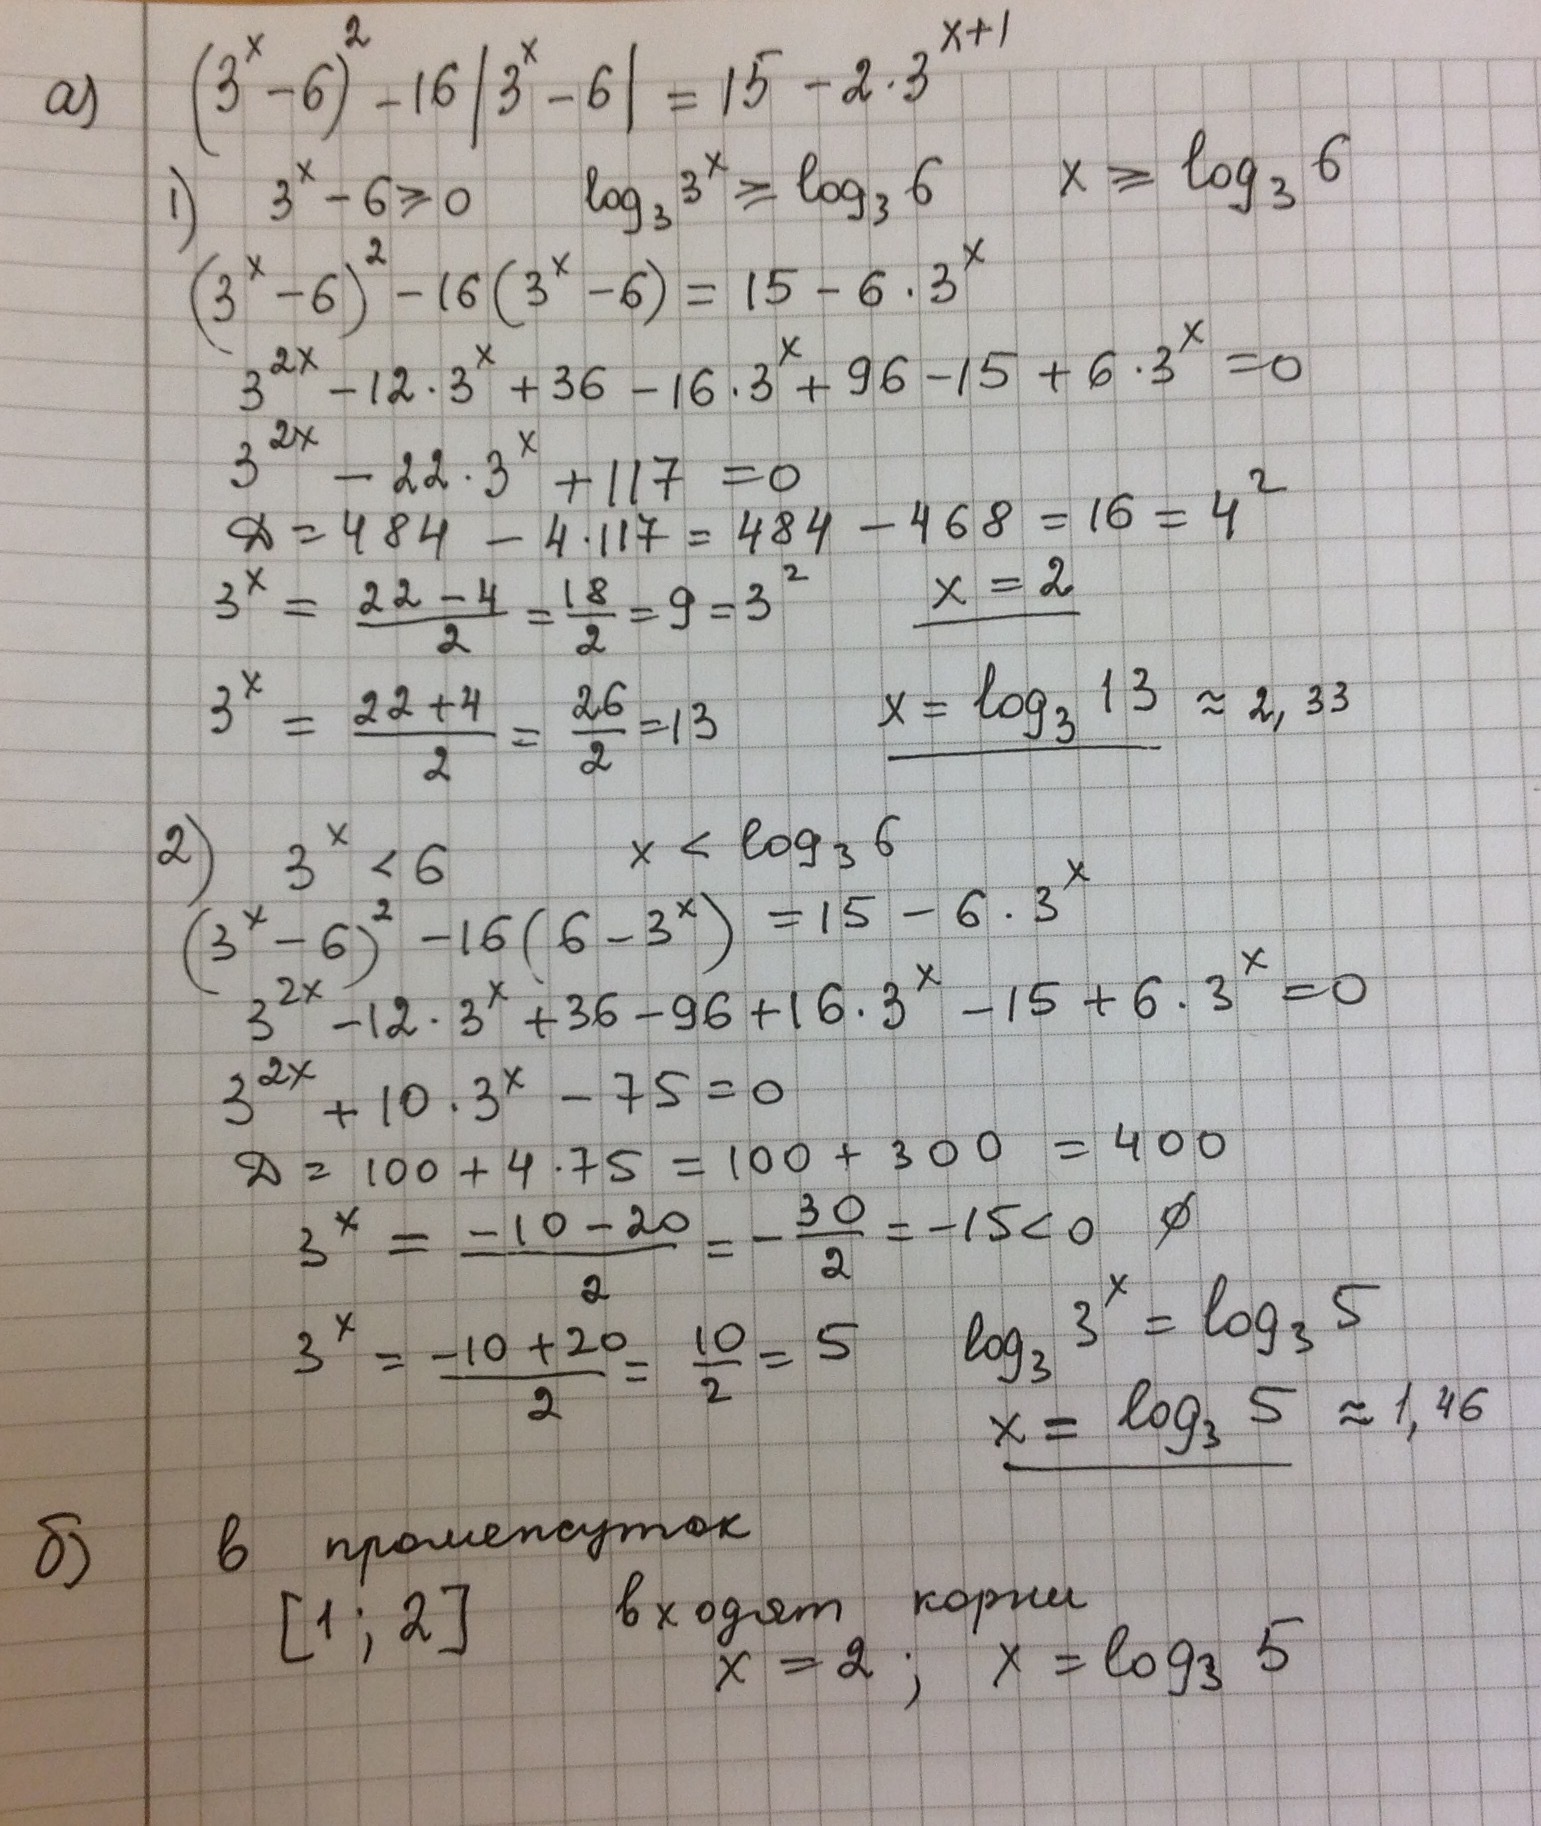 а) (3^x - 6)^2 - 16|3^x - 6| = 15 - 2·3^(x+1)
1) 3^x - 6 ⩾ 0 log_3 3^x ⩾ log_3 6 x ⩾ log_3 6
(3^x - 6)^2 - 16(3^x - 6) = 15 - 6·3^x
3^(2x) - 12·3^x + 36 - 16·3^x + 96 - 15 + 6·3^x = 0
3^(2x) - 22·3^x + 117 = 0
D = 484 - 4·117 = 484 - 468 = 16 = 4^2
3^x = (22 - 4)/2 = 18/2 = 9 = 3^2 x = 2
3^x = (22 + 4)/2 = 26/2 = 13 x = log_3 13 ≈ 2,33
2) 3^x < 6 x < log_3 6
(3^x - 6)^2 - 16(6 - 3^x) = 15 - 6·3^x
3^(2x) - 12·3^x + 36 - 96 + 16·3^x - 15 + 6·3^x = 0
3^(2x) + 10·3^x - 75 = 0
D = 100 + 4·75 = 100 + 300 = 400
3^x = (-10 - 20)/2 = -30/2 = -15 < 0 ∅
3^x = (-10 + 20)/2 = 10/2 = 5 log_3 3^x = log_3 5
x = log_3 5 ≈ 1,46
б) в промежуток
[1; 2] входят корни
x = 2; x = log_3 5